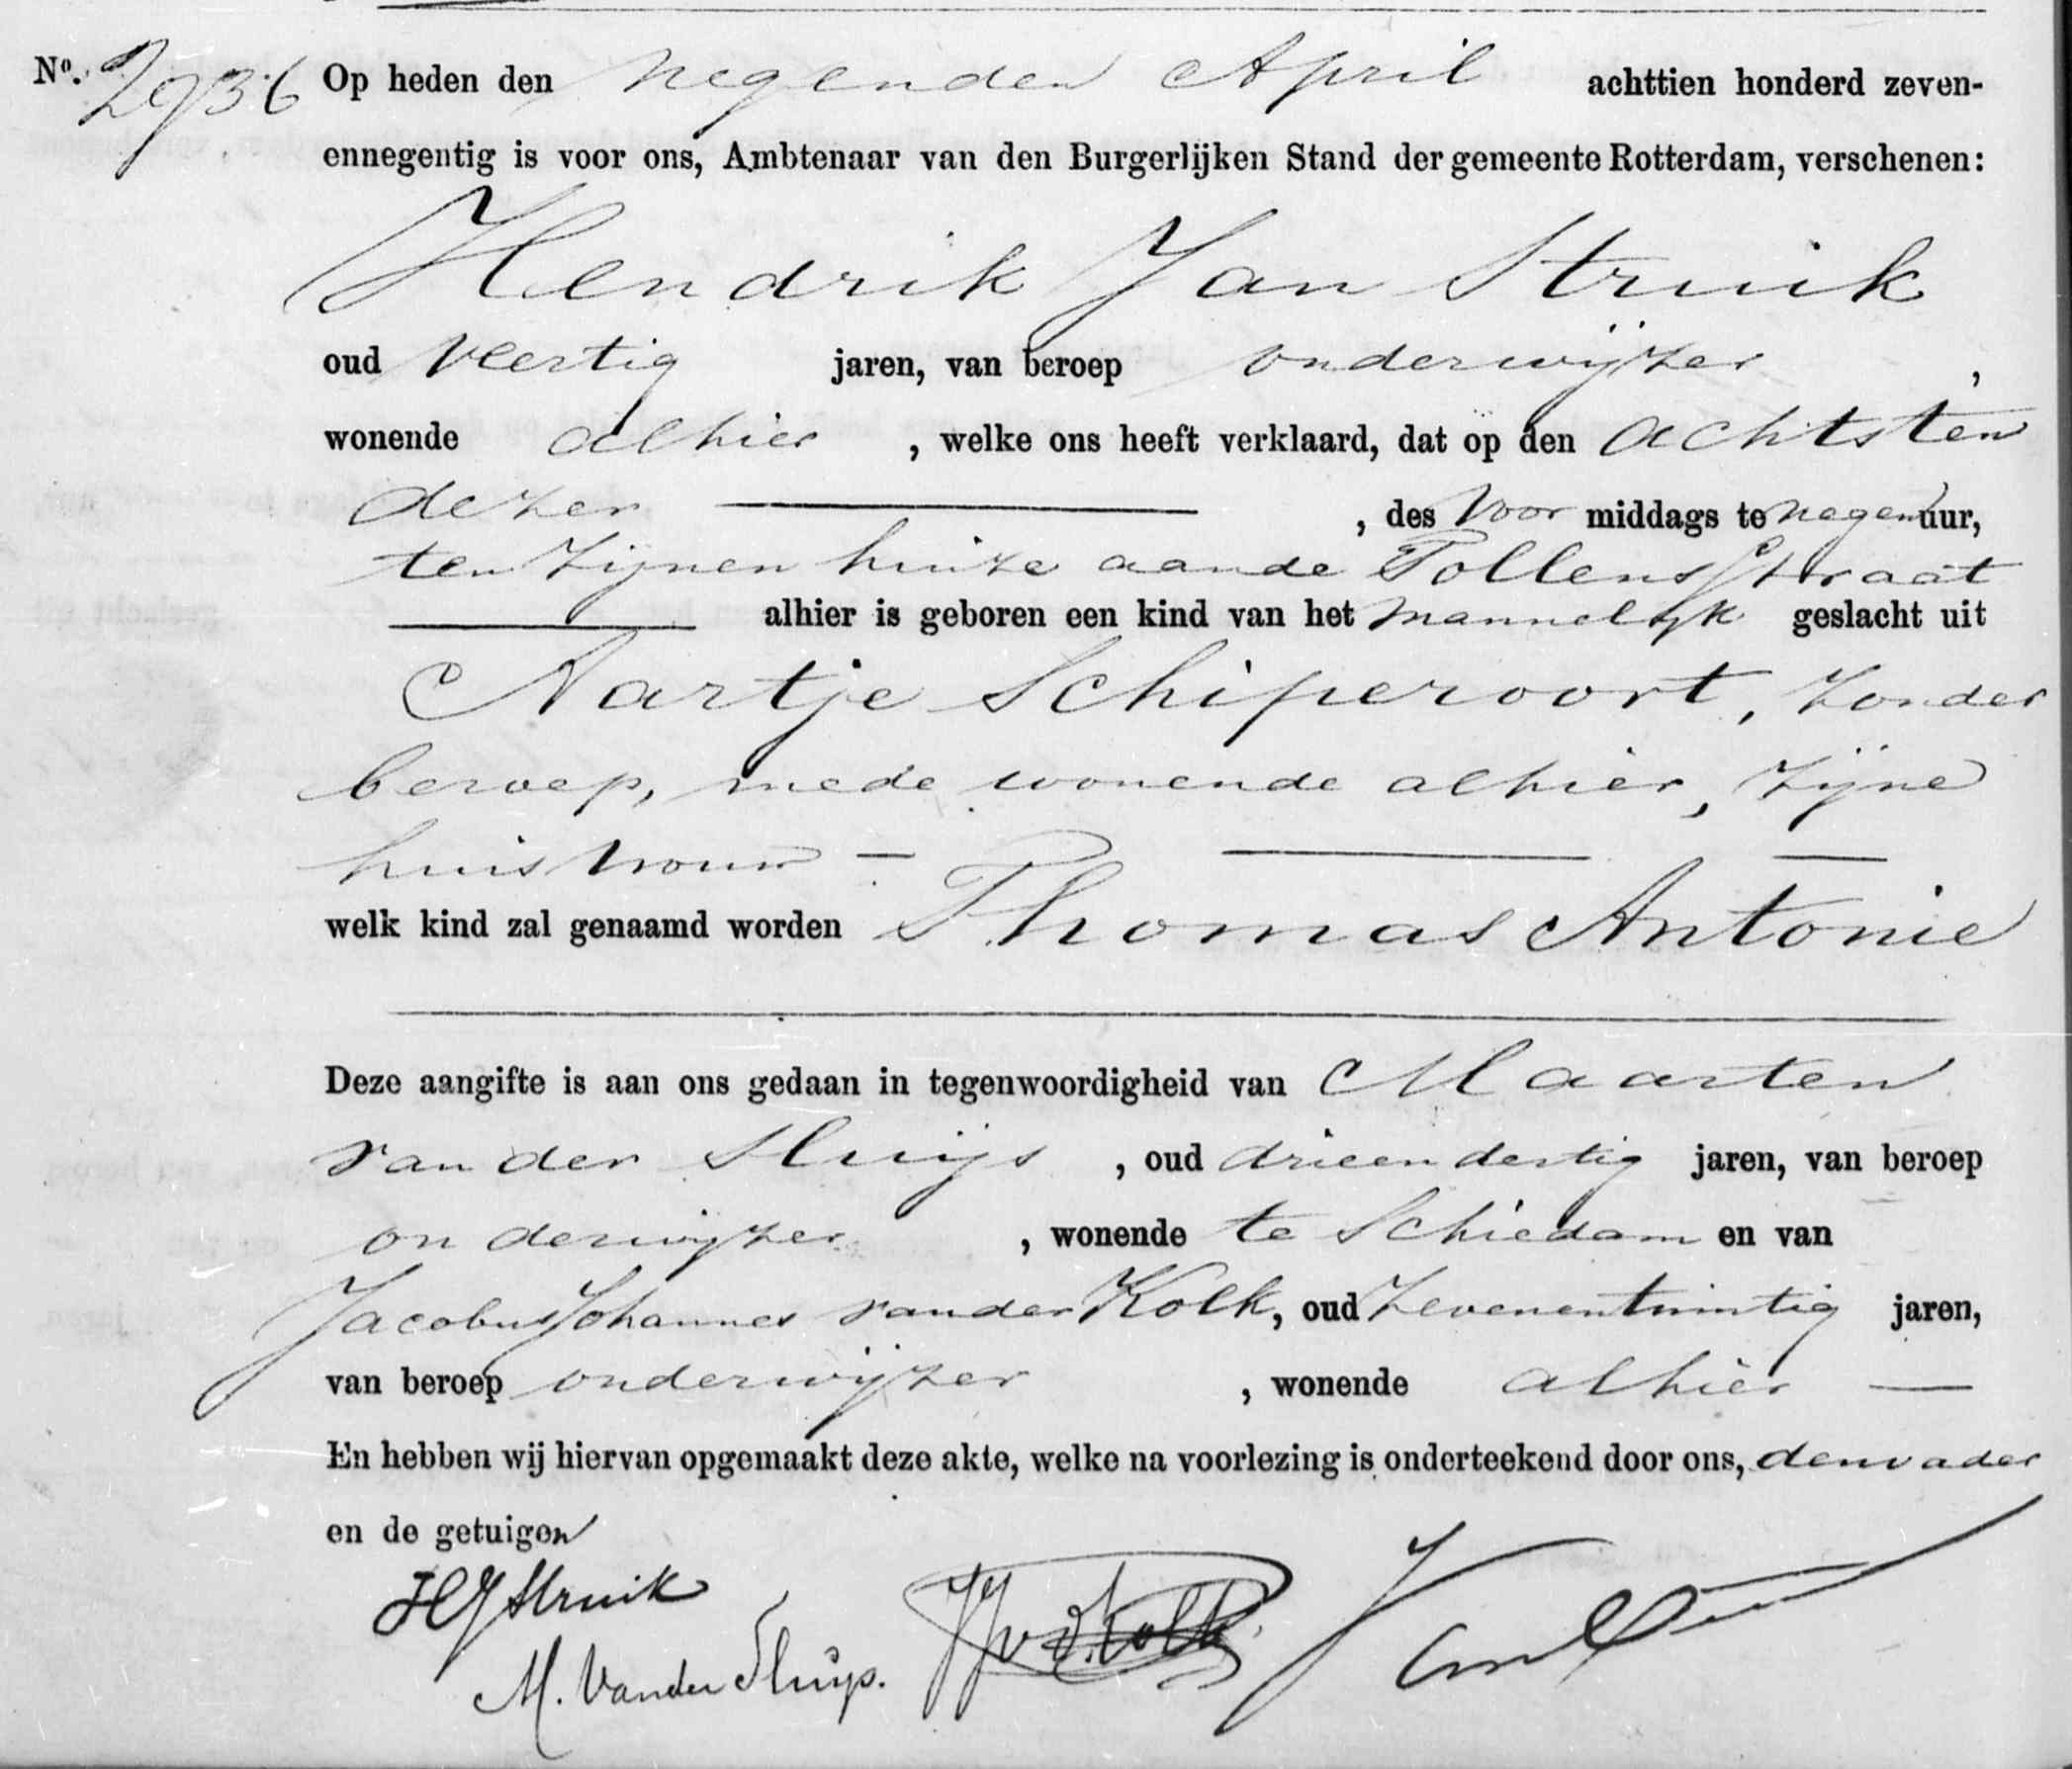 No. 2936 Op heden den negenden April achttien honderd zeven-
ennegentig is voor ons, Ambtenaar van den Burgerlijken Stand der gemeente Rotterdam, verschenen:
Hendrik Jan Struik
oud veertig jaren, van beroep onderwijzer,
wonende alhier, welke ons heeft verklaard, dat op den achtsten
dezer, des voor middags te negen uur,
ten zijnen huize aan de Tollensstraat
alhier is geboren een kind van het mannelijk geslacht uit
Aartje Schiperoort, zonder
beroep, mede wonende alhier, zijne
huisvrouw
welk kind zal genaamd worden Thomas Antonie
Deze aangifte is aan ons gedaan in tegenwoordigheid van Maarten
van der Sluijs, oud drieendertig jaren, van beroep
onderwijzer, wonende te Schiedam en van
Jacobus Johannes van der Kolk, oud zevenentwintig jaren,
van beroep onderwijzer, wonende alhier
En hebben wij hiervan opgemaakt deze akte, welke na voorlezing is onderteekend door ons, den vader
en de getuigen
HJ Struik
M. van der Sluijs.
JJ v d Kolk